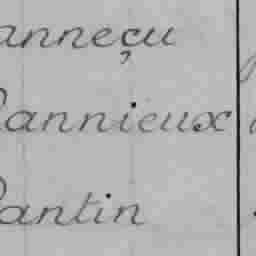 anneçu
annieux
antin